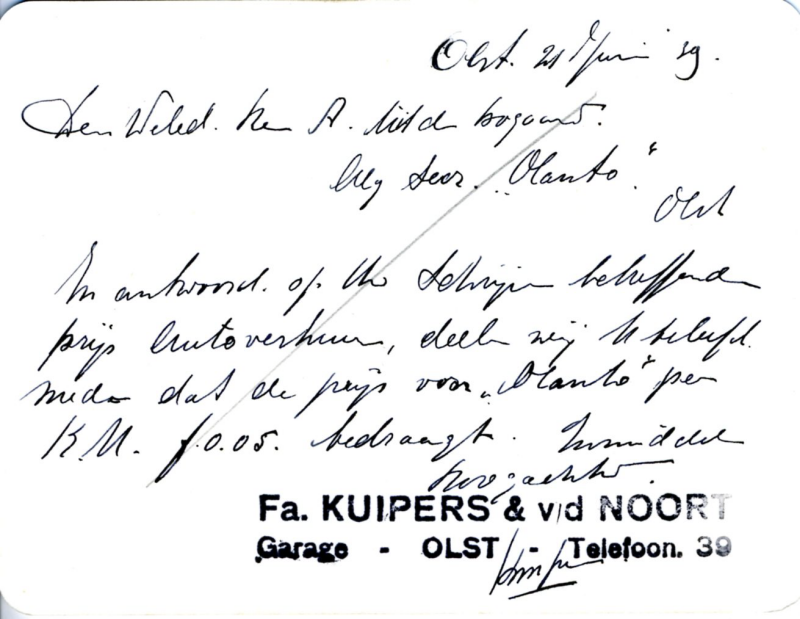 Olst. 21 Juni '39.
Den Weled. Heer A. Uit den Bogaard.
Alg Secr. „Olanto"
Olst
In antwoord. op Uw schrijven betreffende
prijs Autoverhuur, deelen wij U beleefd.
mede dat de prijs voor „Olanto" per
K.M. f 0.05. bedraagt. Inmiddels
Hoogachtend.
Fa. KUIPERS & v/d NOORT
Garage - OLST - Telefoon. 39